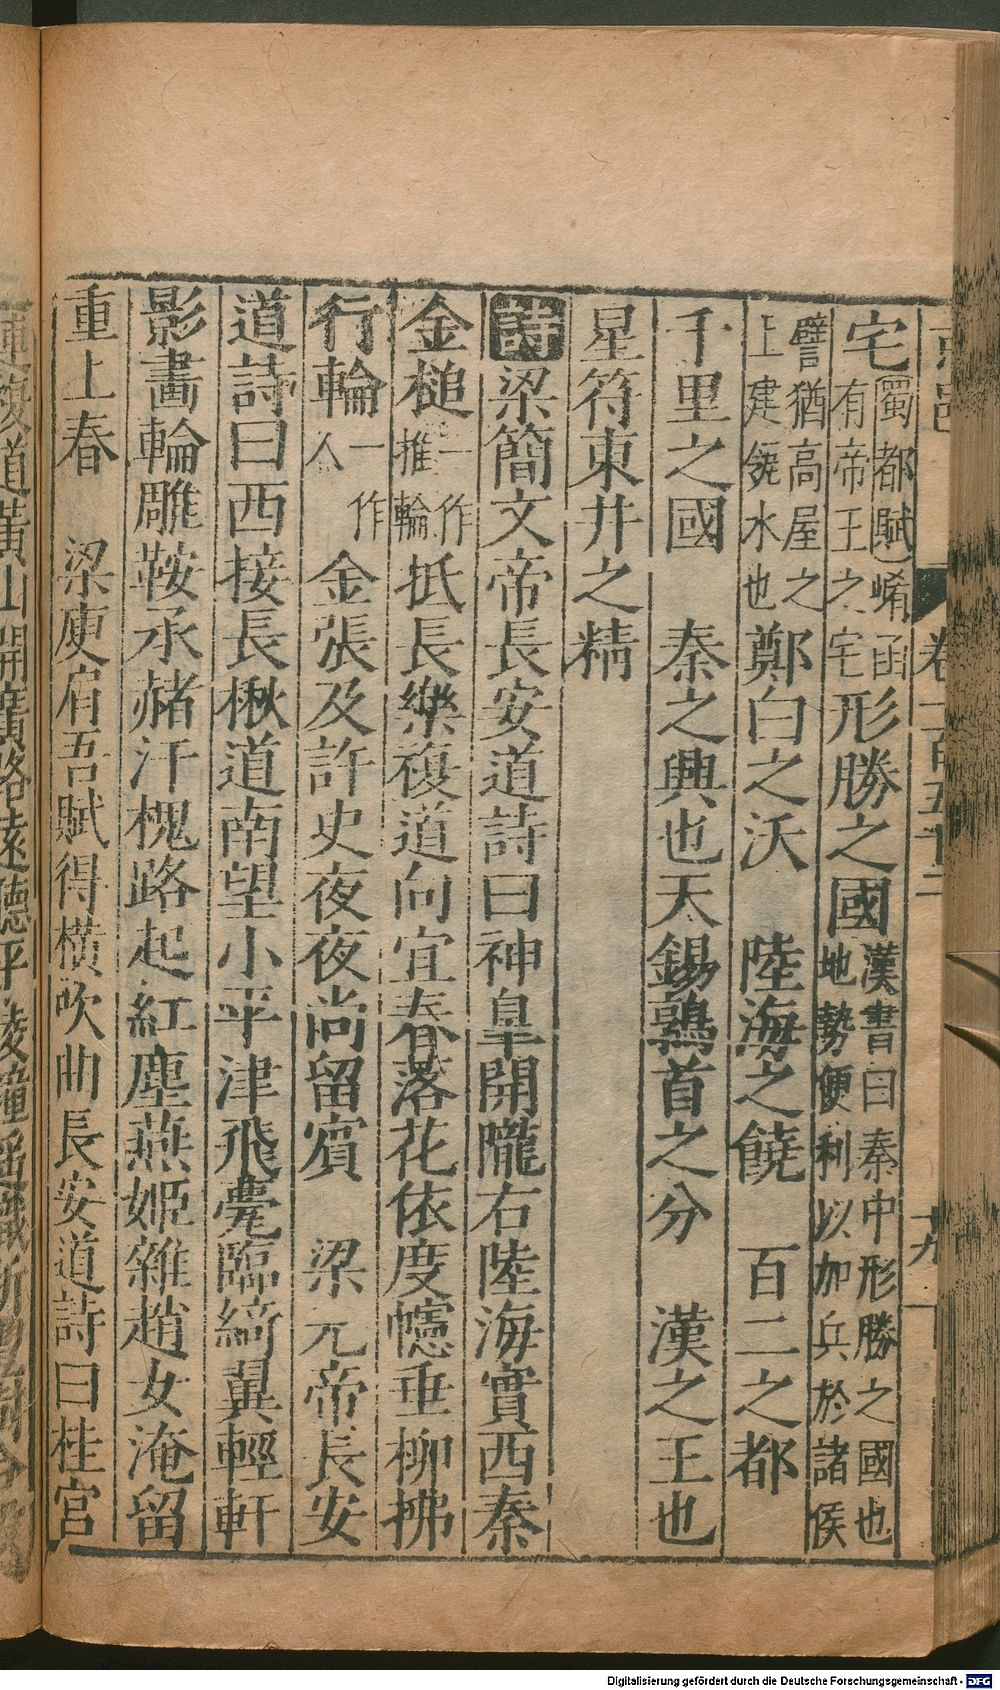 卷一百五十二
十九
宅蜀都賦崤函有帝王之宅形勝之國漢書曰秦中形勝之國也地勢便利以加兵於諸侯
譬猶高屋之上建瓴水也鄭白之沃　陸海之饒　百二之都
千里之國　秦之興也天錫鶉首之分　漢之王也
星符東井之精
詩梁簡文帝長安道詩曰神皐開隴右陸海實西秦
金槌一作推輪抵長樂複道向宜春落花依度幰垂柳拂
行輪一作人金張及許史夜夜尚留賓　梁元帝長安
道詩曰西接長楸道南望小平津飛甍臨綺翼輕軒
影畫輪雕鞍承赭汗槐路起紅塵燕姬雜趙女淹留
重上春　梁庾肩吾賦得橫吹曲長安道詩曰桂宮
Digitalisierung gefördert durch die Deutsche Forschungsgemeinschaft - DFG